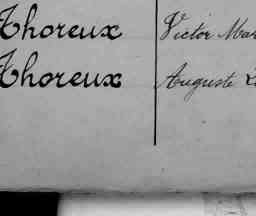 Thoreux Victor Mar
Thoreux Auguste